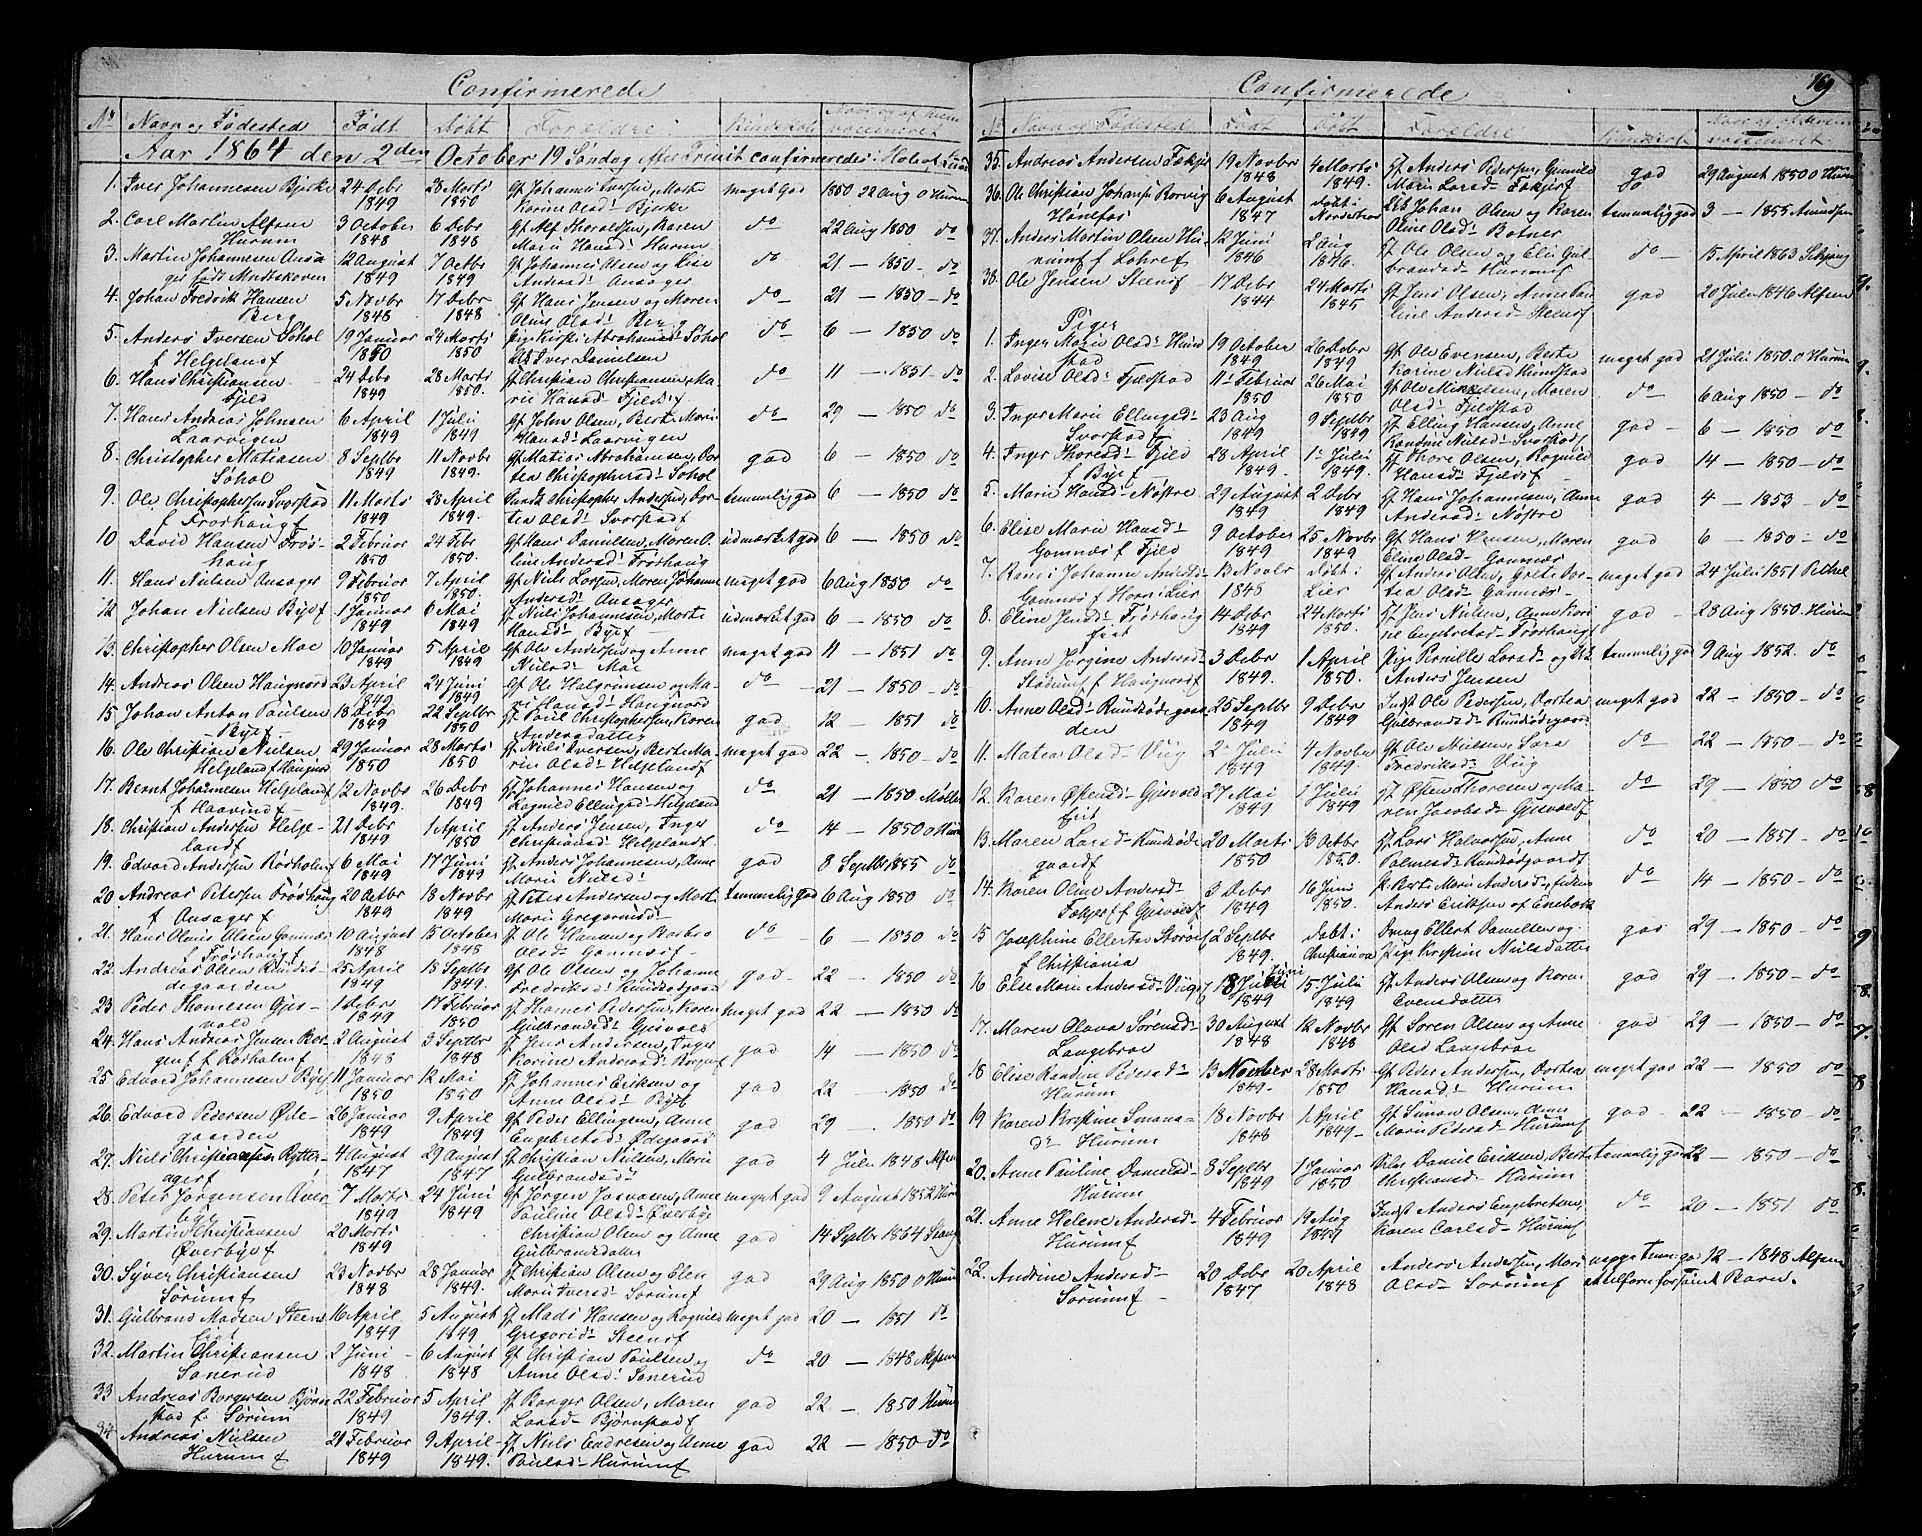 Confirmerede
No Navn og Fødested Født Døbt Forældre Kundskab
Aar 1864 den 2den October 19 Søndag efter Trinit confirmeredes i Holms
1. Iver Johannesen Bjerke 24 Debr 28 Marts Gf Johannes Iversen, Marte meget god 1850 22 Aug o Hurum
1849 1850 Karine Olsd: Bjerke
2. Carl Martin Alfsen 3 October 6 Debr Gf Alf Thoralfsen, Karen do 22 Aug 1850 do
Hurum 1848 1848 Marie Hansd: Hurum
3. Martin Johannesen Ansa- 12 August 7 Octbr Gf Johannes Olsen og Lise do 21 — 1850 - do
1849 1849 Andersd: Ansager
4. Johan Fredrik Hansen 5 Novbr 17 Debr Gf Hans Jensen og Maren do 21 — 1850 - do
Berg 1848 1848 Oline Olsd: Berg
5. Anders Iversen Søhol 19 Januar 24 Marts Pige Kirsti Abrahamsd: Søhol do 6 — 1850 do
f Helgelandf 1850 1850 Iver Danielsen
6. Hans Christiansen 24 Debr 28 Marts Gf Christian Christiansen, Ma- do 11 — 1851 - do
Fjeld 1849 1850. rie Hansd: Fjeldf
7. Hans Andreas Johnsen 6 April 1 Juli Gf John Olsen, Berte Marie do 29 — 1850 do
Laarvigen 1849 1849 Hansd: Laarvigen
8. Christopher Matiasen 8 Septbr 11 Novbr Gf Matias Abrahamsen, Dor- god 6 — 1850 do
Søhol 1849 1849. tea Christophersd: Søhol
9. Ole Christophersen Svorstad 11 Marts 28 April Christopher Andersen, Dor- temmelig god 6 — 1850 do
f Frøshaugf 1849 1849. tea Olsd: Svorstadf
10 David Hansen Frøs- 2 Februar 24 Febr Gf Hans Danielsen, Maren O- udmærket god 6 — 1850 do
haug 1850 1850. line Andersd: Frøshaug
11. Hans Nielsen Ansager 9 Februar 7 April Gf Niels Larsen, Maren Johanne meget god 6 Aug 1850 do
1850 1850. Andersd: Ansager
12 Johan Nielsen Byef 1 Januar 6 Mai Gf Niels Johannesen, Marte udmærket god 6 — 1850 do
1849 1849 Hansd: Byef
13. Christopher Olsen Moe 10 Januar 5 April Gf Ole Andersen og Anne meget god 11 — 1851 do
1849 1849 Nielsd: Moe
14. Andreas Olsen Haugnord 23 April 24 Juni Gf Ole Halgrimsen og Ma- do 21 — 1850 - do
1849 1849 rie Hansd: Haugnord
15 Johan Anton Paulsen 18 Debr 22 Septbr Gf Paul Christophersen, Karen god 12 — 1851 do
Byef 1849 1850 Andersdatter
16. Ole Christian Nielsen 29 Januar 28 Marts Gf Niels Iversen, Berte Ma- meget god 22 — 1850 - do
Helgeland f Haugnor 1850 1850 rie Olsd: Helgelandf
17. Bernt Johannesen Helgelandf 12 Novbr 26 Debr Gf Johannes Hansen og do 21 — 1850 Møller
f Haavindf 1849. 1849 Ragnild Ellingsd: Helgeland
18. Christian Andersen Helge- 21 Debr 1 April Gf Anders Jensen, Inger do 14 — 1850 o Hurum
landf 1849 1850 Christiansd: Helgelandf
19. Edvard Andersen Rødholmf 6 Mai 17 Juni Gf Anders Johannesen, Anne god 8 Septbr 1855 do
1849 1849 Marie Nielsd:
20 Andreas Petersen Frøshaug 20 Octbr 18 Novbr Gf Peter Andersen og Marte temmelig god 6 Aug 1850 do
f Ansager f 1849 1849 Marie Gregoriusd:
21. Hans Olaus Olsen Gomnæs 10 August 15 October Gf Ole Hansen og Barbro do 6 — 1850 do
f Frøshaugf 1848 1848 Olsd: Gomnæsf
22 Andreas Olsen Rundsø- 25 April 18 Septbr Gf Ole Olsen og Johanne god 22 — 1850 do
degaarden 1849 1849. Fredriksd: Rundsødgaard
23 Peder Thomesen Gjes- 1 Debr 17 Februar Gf Thomes Pedersen, Karen meget god 22 — 1850 do
vold 1849 1850 Gulbrandsd: Gjesvold
24. Hans Andreas Jensen Bor- 2 August 3 Septbr Gf Jens Andersen, Inger god 14 — 1850 do
gen f f Rødholmf 1848 1848 Karine Andreasd: Borgenf
25 Edvard Johannesen Byef 11 Januar 12 Mai Gf Johannes Eriksen og god 22 — 1850 do
1850 1850 Anne Olsd: Byef
26. Edvard Pedersen Øde- 26 Januar 9 April Gf Peder Ellingsen, Anne god 29 — 1850 do
gaarden 1849 1849 Engebretsd: Ødegaard
27. Niels Christiansen Rytter- 4 August 29 August Gf Christian Nielsen, Marie god 4 Juli 1848 Alfsen
agerf 1847 1847 Gulbrandsd:
28. Peter Jørgensen Over- 7 Marts 24 Juni Gf Jørgen Jonasen, Anne meget god 9 August 1852 Hurum
bye 1849 1849 Pauline Olsd: Øverbye
29. Martin Christiansen 20 Marts Christian Olsen og Anne god 14 Septbr 1864 Stang
Øverbyef 1849 Gulbrandsdatter
30. Syver Christiansen 23 Novbr 28 Januar Gf Christian Olsen og Elen god 29 Aug 1850 o Hurum
Sørumf 1848 1849. Marie Iversd: Sørumf
31. Gulbrand Madsen Steens 16 April 5 August Gf Mads Hansen og Ragnild meget god 20 — 1851 do
1849 1849 Gregorid: Steensf
32. Martin Christiansen 2 Juni 6 August Gf Christian Paulsen og do 20 — 1848 Alfsen
Sonerud 1848 1848 Anne Olsd: Sonerud
33 Andreas Borgersen Bjørn- 22 Februar 5 April Gf Borger Olsen, Maren god 22 — 1850 Hurum
stad f. Sørum 1849 1849. Larsd: Bjørnstadf
34 Andreas Nielsen 21 Februar 9 April Gf Niels Endresen og Anne god 22 — 1850 do
Hurumf 1849 1849. Paulsd: Hurumf
Confirmerede 169
No Navn og Fødested Født Døbt Forældre Kundskab
35. Andreas Andersen Fækjerf 19 Novbr 4 Marts Gf Anders Pedersen, Gunnild god 29 August 1850 o Hurum
1848 1849. Marie Larsd: Fækjerf
36. Ole Christian Johansen Borvig 6 August døbt i Johan Olsen og Karen temmelig god 3 — 1855 Amundsen
Hønefos 1847 Oline Olsd: Botner
37. Anders Martin Olsen Hu- 12 Juni 2 Aug Gf Ole Olsen og Eli Gul- do 15 April 1863
rumf f Lohref 1846 1846. brandsd: Hurumf
38. Ole Jensen Steensf 17 Debr 24 Marts Gf Jens Olsen, Anne Pau- god 20 Juli 1846 Alfsen
1844 1845 line Andersd: Steensf
Piger
1. Inger Marie Olsd: Hund- 19 October 26 Debr Gf Ole Evensen, Berte meget god 21 Juli 1850 o Hurum
stad 1849 1849 Karine Nielsd: Hundstad
2. Lovise Olsd: Fjeldstad 11 Februar 26 Mai Gf Ole Mikkelsen, Maren do 6 Aug 1850 - do
1850 1850 Olsd: Fjeldstad
3. Inger Marie Ellingsd: 23 Aug 9 Septbr Gf Elling Hansen, Anne god - 6 — 1850 do
Svorstad 1849 1849 Randine Nielsd: Svorstadf
4. Inger Thoresd: Fjeld 28 April 1 Juli Gf Thore Olsen, Ragnild god 14 — 1850 - do
f Byef 1849. 1849. Hansd: Fjeldf
5. Marie Hansd: Nøstre 29 August 2 Debr Gf Hans Johannesen, Anne god 4 — 1853 do
1849 1849 Andersd: Nøstre
6. Elise Marie Hansd: 9 October 25 Novbr Gf Hans Hansen, Maren god 6 — 1850 - do
Gomnæs f Fjeld 1849 1849 Eline Olsd: Gomnæs
7. Johanne Andersd: 13 Novbr Døbt i Gf Anders Olsen, Grete Dor- meget god 24 Juli 1851
Gomnæs f Horn i Lier 1848 Lier tea Olsd: Gomnæs
8. Eline Jensd: Frøshaug 14 Debr 24 Marts Gf Jens Nielsen, Anne Kari- god 28 Aug 1850 Hurum
1849 1850. ne Engebretsd: Frøshaugf
9. Anne Jørgine Andersd: 3 Debr 1 April Pige Pernille Larsd: og temmelig god 9 Aug 1852. do
f Haugnorf 1849. 1850. Anders Jensen
10. Anne Olsd: Rundsødegaar- 25 Septbr 9 Debr Indst Ole Pedersen, Dortea meget god 22 — 1850 - do
den 1849 1849 Gulbrandsd: Rundsødegaard
11. Matea Olsd: Viig 2 Juli 4 Novbr Gf Ole Nielsen, Sara do 22 — 1850 - do
1849 1849. Fredriksd: Viig
12. Karen Østensd: Gjesvold 27 Mai 1 Juli Gf Østen Thoresen og Ma- do 29 — 1850 do
1849 1849 ren Jacobsd: Gjesvoldf
13. Maren Larsd: Rundsøde- 20 Marts 13 Octbr Gf Lars Halvorsen, Anne do 20 — 1851 - do
gaardf 1850 1850. Palmesd: Rundsødgaardf
14. Karen Oline Andersd: 3 Debr 16 Juni Berte Marie Andersd: do 14 — 1850 - do
Fækjerf f Gjesvoldf 1849 1850. Anders Eriksen af Enebak
15 Josephine Ellertsen Storøef 2 Septbr Døbt i Dreng Ellert Danielsen og god 29 — 1850 - do
f Christiania 1849. Christiania Pige Kristine Nielsdatter
16 Else Marie Andersd: Viige 18 Juni 15 Juli Gf Anders Olsen og Karen god 29 — 1850 - do
1849 1849 Evensdatter
17. Maren Olava Sørensd: 30 August 12 Novbr Gf Søren Olsen og Anne god 29 — 1850 - do
Langebroe 1848 1848 Olsd Langebroe
18 Elise Randine Pedersd: 13 November 28 Marts Gf Peder Andersen, Dortea meget god 22 — 1850 do
Hurum 1849. 1850 Hansd: Hurum
19 Karen Kristine Simens- 18 Novbr 1 April Gf Simon Olsen, Anne god 22 — 1850 - do
d: Hurum 1848 1849 Marie Pedersd: Hurumf
20. Anne Pauline Danielsd: 8 Septbr 1 Januar Daniel Eriksen, Berte temmelig god 22 — 1850 - do
Hurum 1849 1850 Christiansd: Hurum
21. Anne Helene Andersd: 4 Februar 19 Aug Indst Anders Engebretsen, do 20 — 1851 do
Hurumf 1849 1849 Karen Carlsd: Hurumf
22. Andrine Andersd: 20 Debr 20 April Anders Andersen, Mari neppe tem: god 12 — 1848 Alfsen
Sørumf 1847 1848 Olsd: Sørumf forsømt Barn.